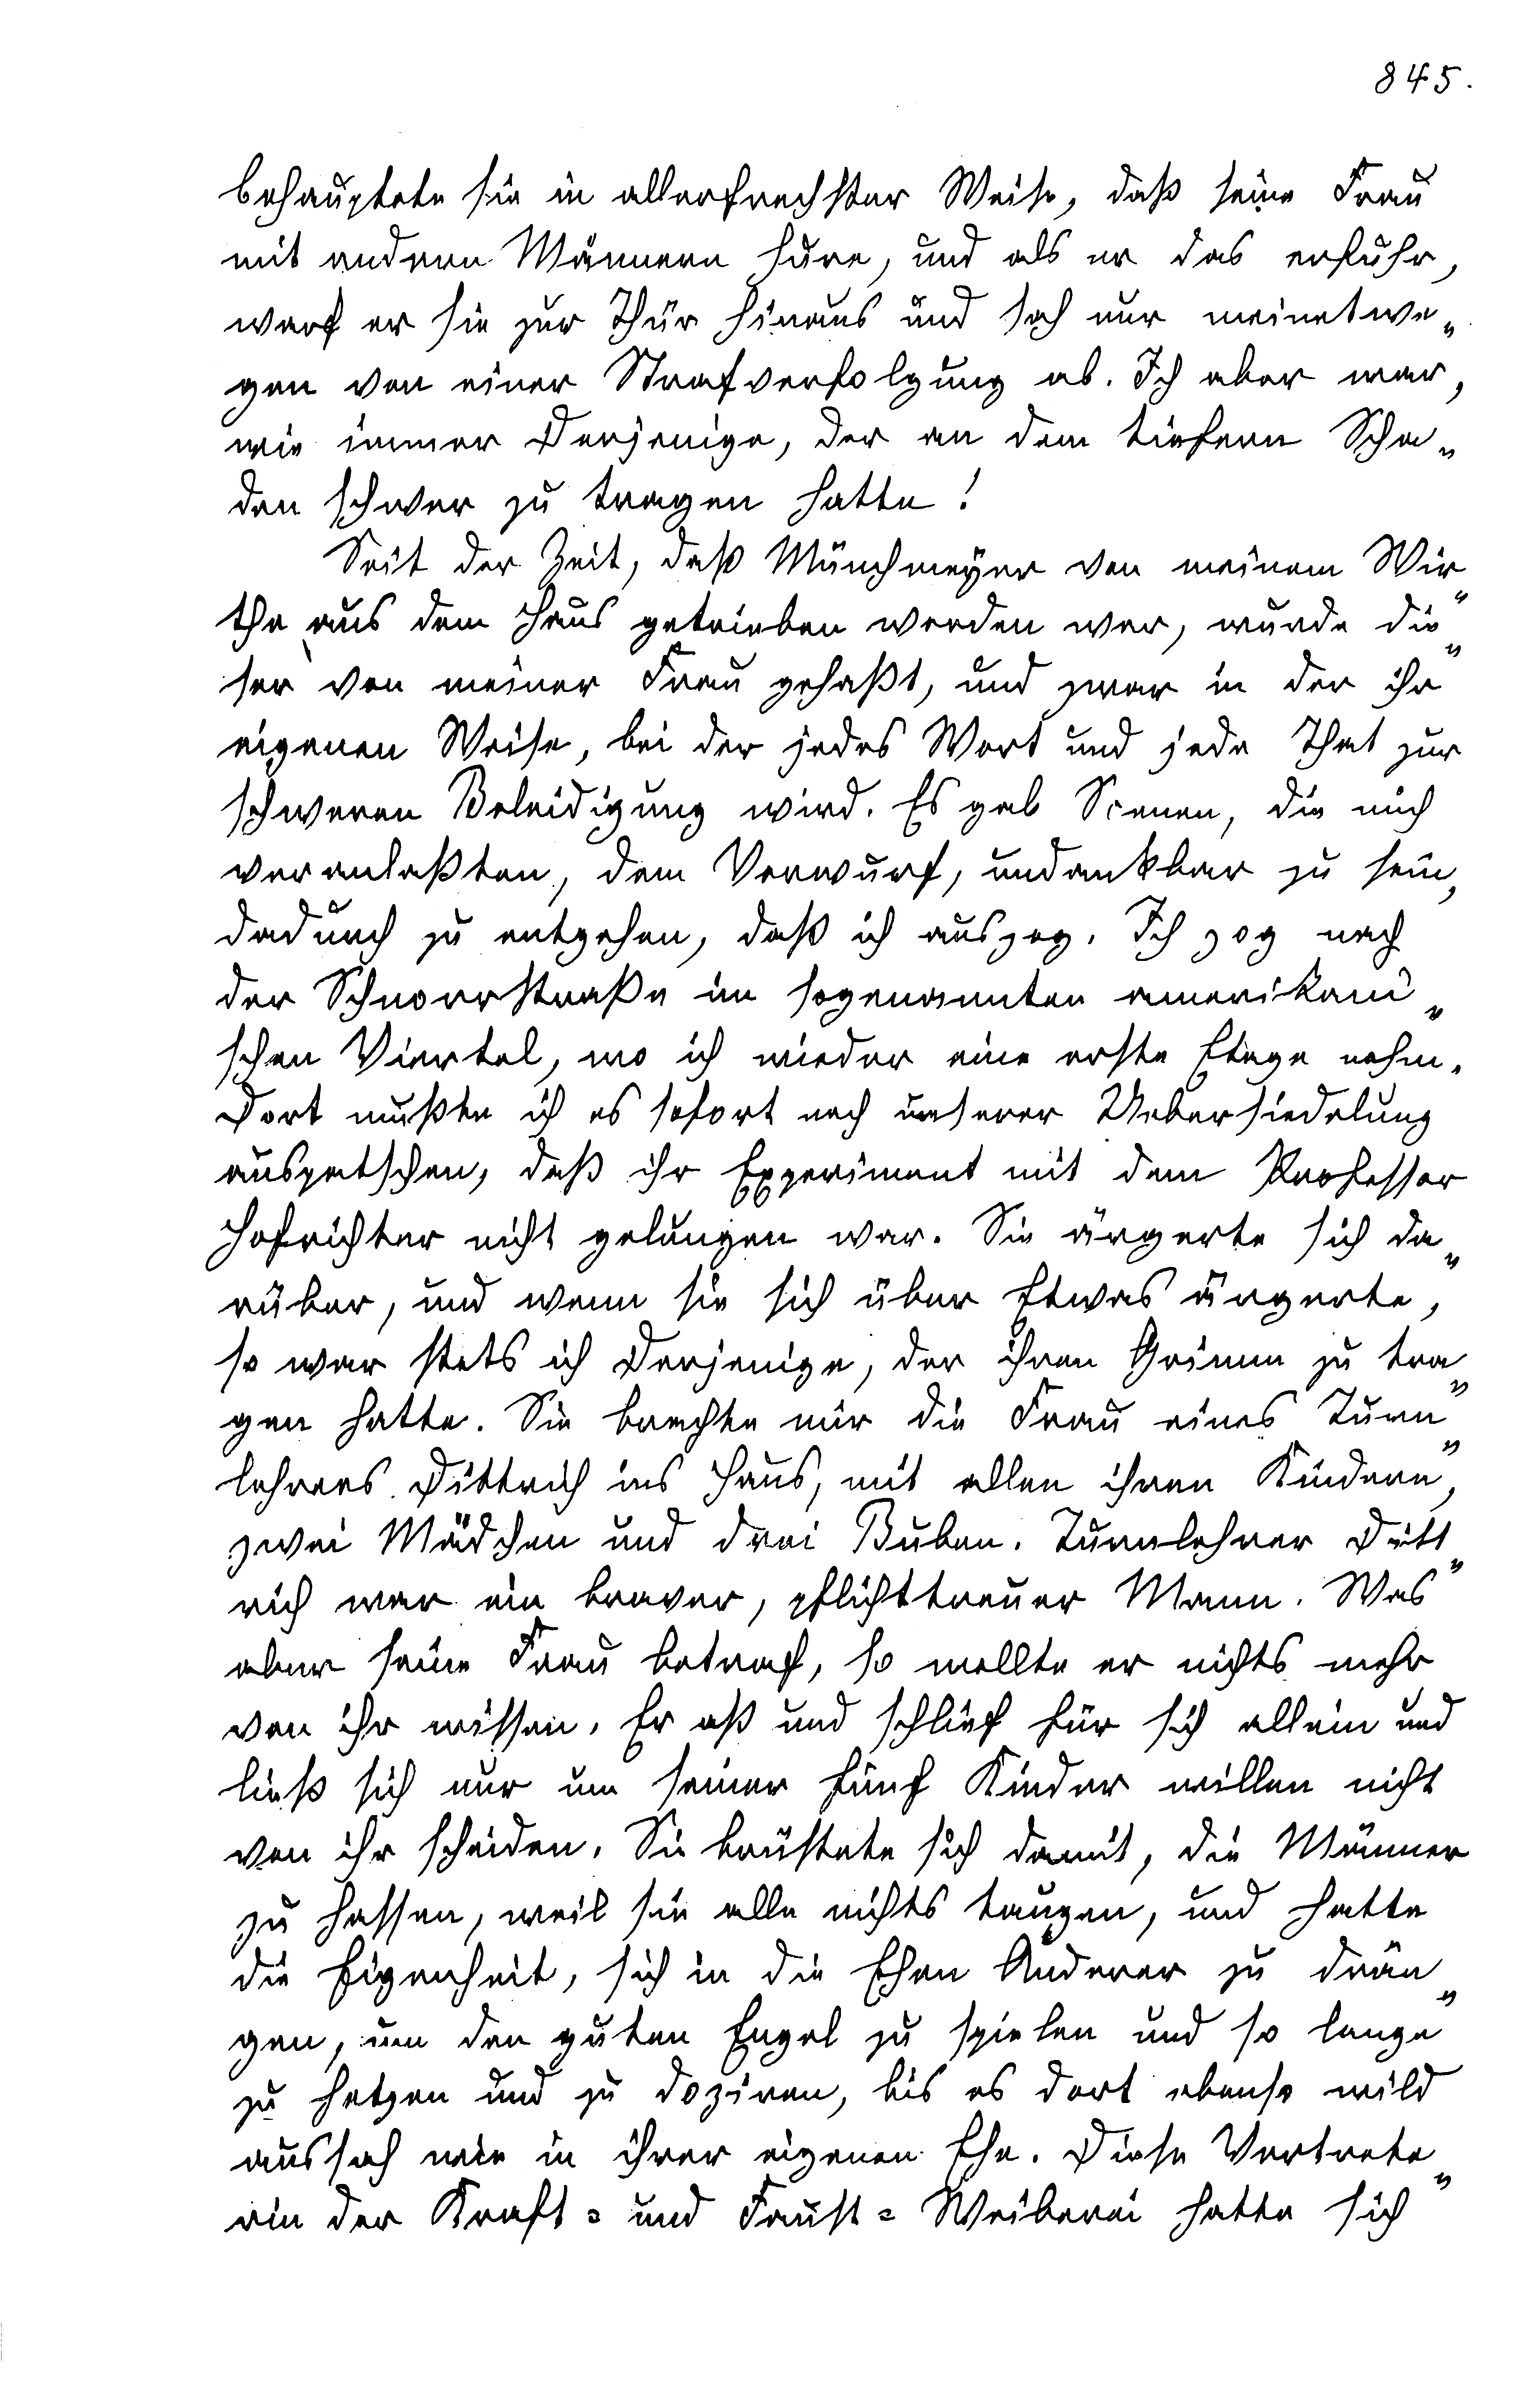 845.
behauptete sie in allerfrechster Weise, daß seine Frau
mit andern Männern hure, und als er das erfuhr,
warf er sie zur Thür hinaus und sah nur meinetwe„
gen von einer Strafverfolgung ab. Ich aber war,
wie immer Derjenige, der an dem tiefern Scha„
den schwer zu tragen hatte!
Seit der Zeit, daß Münchmeyer von meinem Wir„
the aus dem Haus getrieben worden war, wurde die„
ser von meiner Frau gehaßt, und zwar in der ihr
eigenen Weise, bei der jedes Wort und jede That zur
schweren Beleidigung wird. Es gab Scenen, die mich
veranlaßten, dem Vorwurf, undankbar zu sein,
dadurch zu entgehen, daß ich auszog. Ich zog nach
der Schnorrstraße im sogenannten amerikani„
schen Viertel, wo ich wieder eine erste Etage nahm.
Dort mußte ich es sofort nach unserer Uebersiedelung
auspatschen, daß ihr Experiment mit dem Professor
Hofrichter nicht gelungen war. Sie ärgerte sich da„
rüber, und wenn sie sich über Etwas ärgerte,
so war stets ich Derjenige, der ihren Grimm zu tra„
gen hatte. Sie brachte mir die Frau eines Turn„
lehrers Dittrich ins Haus, mit allen ihren Kindern,
zwei Mädchen und drei Buben. Turnlehrer Ditt„
rich war ein braver, pflichttreuer Mann. Was
aber seine Frau betraf, so wollte er nichts mehr
von ihr wissen. Er aß und schlief für sich allein und
ließ sich nur um seiner fünf Kinder willen nicht
von ihr scheiden. Sie brüstete sich damit, die Männer
zu hassen, weil sie alle nichts taugen, und hatte
die Eigenheit, sich in die Ehen Anderer zu drän„
gen, um den guten Engel zu spielen und so lange
zu hetzen und zu doziren, bis es dort ebenso wild
aussah wie in ihrer eigenen Ehe. Diese Vertrete„
rin der Kraft= und Faust=Weiberei hatte sich